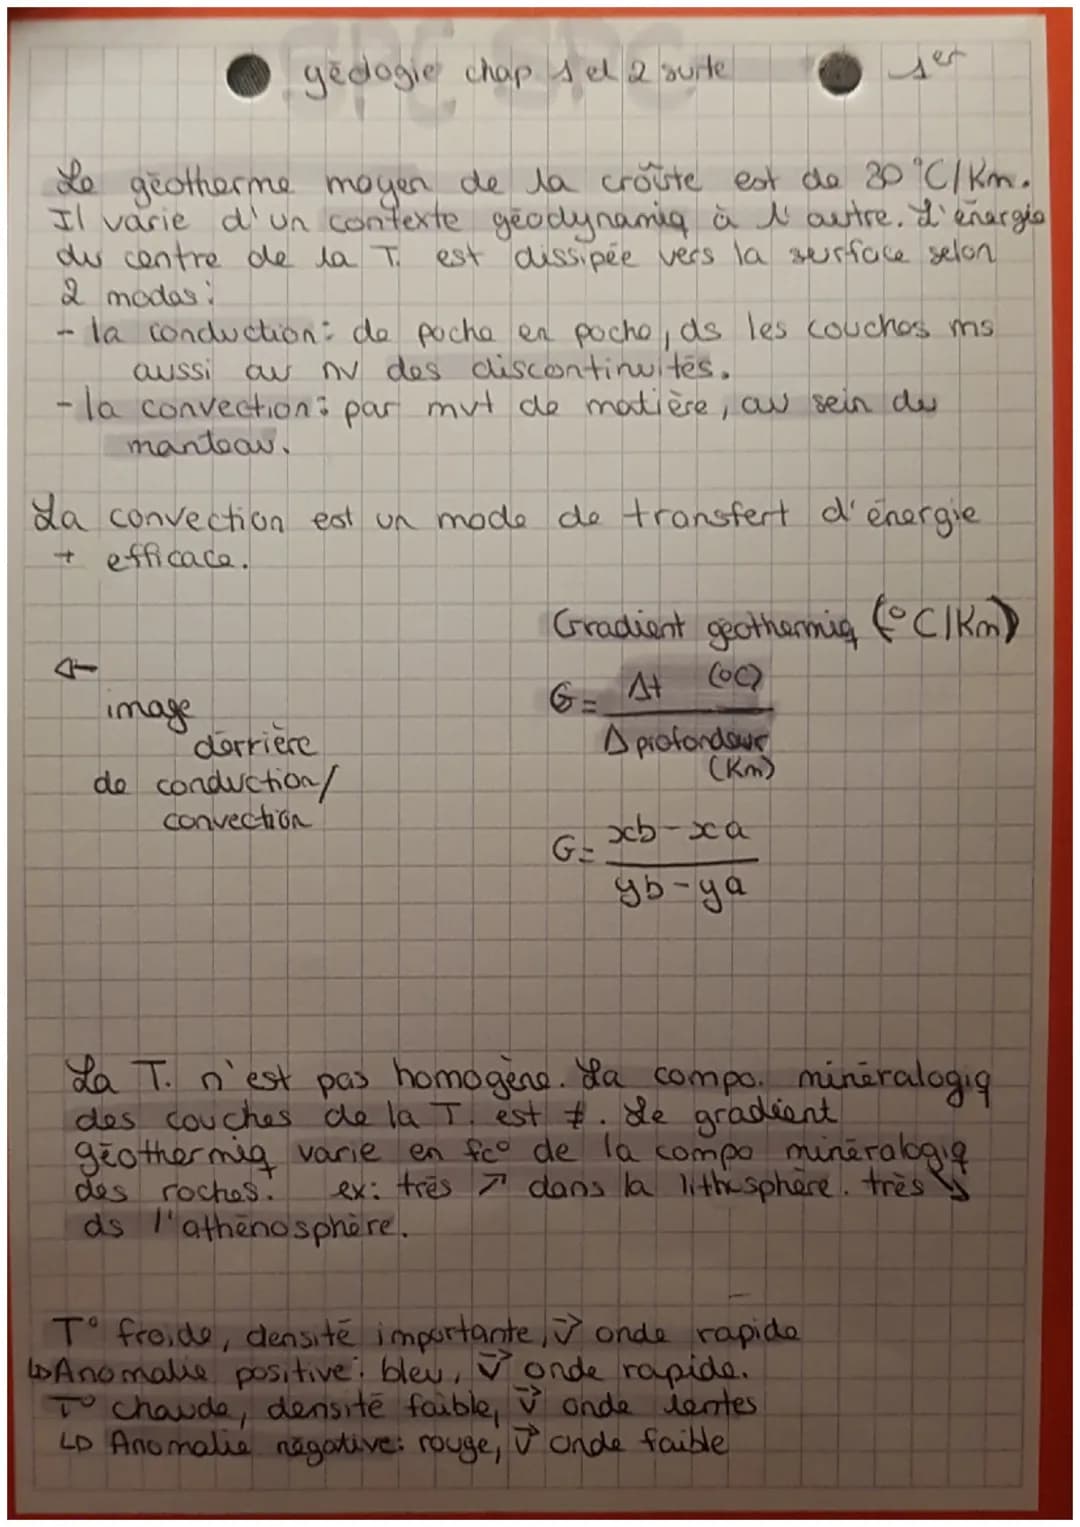 géologie chap 1 et 2 suite
1er
Le géotherme moyen de la croûte est de 30 °C/Km.
Il varie d'un contexte géodynamiq à l'autre. L'énergie
du centre de la T. est dissipée vers la surface selon
2 modes :
- la conduction : de proche en proche, ds les couches ms
aussi au nv des discontinuités.
- la convection : par mvt de matière, au sein du
manteau.
La convection est un mode de transfert d'énergie
+ efficace.
Gradient géothermiq (°C/Km)
G = Δt (°C)
Δ profondeur
(Km)
←
image
derrière
de conduction/
convection
G = xb - xa
yb - ya
La T. n'est pas homogène. La compo. minéralogiq
des couches de la T. est ≠. Le gradient
géothermiq varie en fc° de la compo minéralogiq
des roches. ex: très ↗ dans la lithosphère. très ↘
ds l'athénosphère.
T° froide, densité importante, v⃗ onde rapide
↳ Anomalie positive : bleu, v⃗ onde rapide.
T° chaude, densité faible, v⃗ onde lentes
↳ Anomalie négative : rouge, v⃗ onde faible